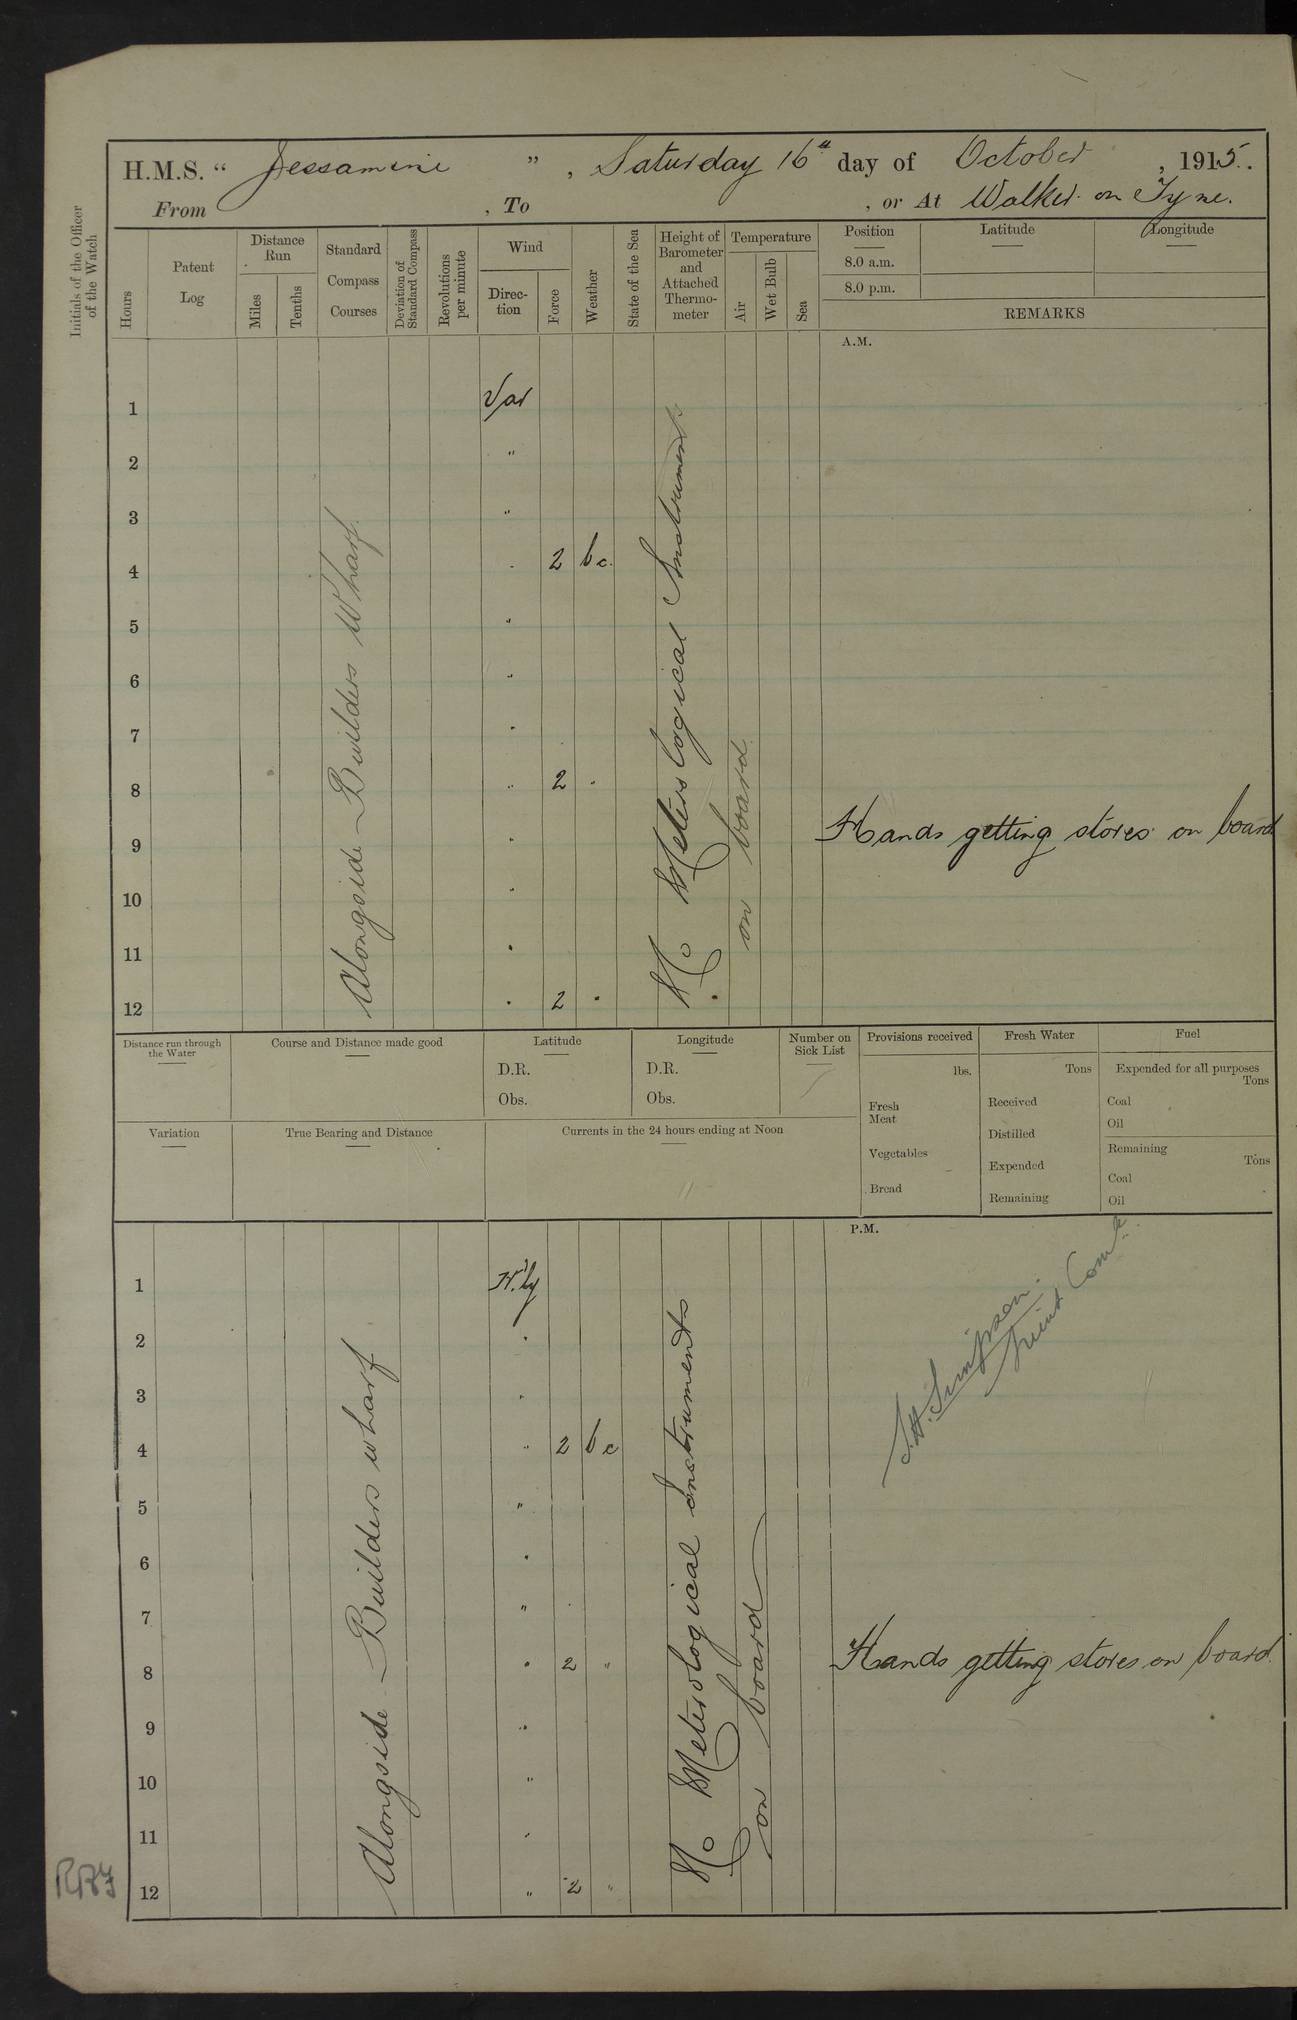 H.M.S. “ Jessamine ”, Saturday 16th day of October, 1915.
From , To , or At Walker on Tyne.
Initials of the Officer of the Watch
Hours
Patent Log
Distance Run
Miles
Tenths
Standard Compass Courses
Deviation of Standard Compass
Revolutions per minute
Wind
Direction
Force
Weather
State of the Sea
Height of Barometer and Attached Thermometer
Temperature
Air
Wet Bulb
Sea
Position
Latitude
Longitude
8.0 a.m.
8.0 p.m.
REMARKS
A.M.
1 Var
2 "
3 "
4 " 2 bc.
5 "
6 "
7 "
8 " 2 "
9 " Hands getting stores on board
10 "
11 "
12 " 2 "
Alongside Builders Wharf.
No Meterological Instruments
on board
Distance run through the Water
Course and Distance made good
Latitude
D.R.
Obs.
Longitude
D.R.
Obs.
Number on Sick List
Provisions received
lbs.
Fresh Meat
Vegetables
Bread
Fresh Water
Tons
Received
Distilled
Expended
Remaining
Fuel
Expended for all purposes
Tons
Coal
Oil
Remaining
Tons
Coal
Oil
Variation
True Bearing and Distance
Currents in the 24 hours ending at Noon
P.M.
1 N'ly
2 "
3 "
4 " 2 bc
5 "
6 "
7 "
8 " 2 " Hands getting stores on board.
9 "
10 "
11 "
12 " 2 "
Alongside Builders wharf
No Meterological instruments
on board
S.A. Simpson.
Lieut Comdr.